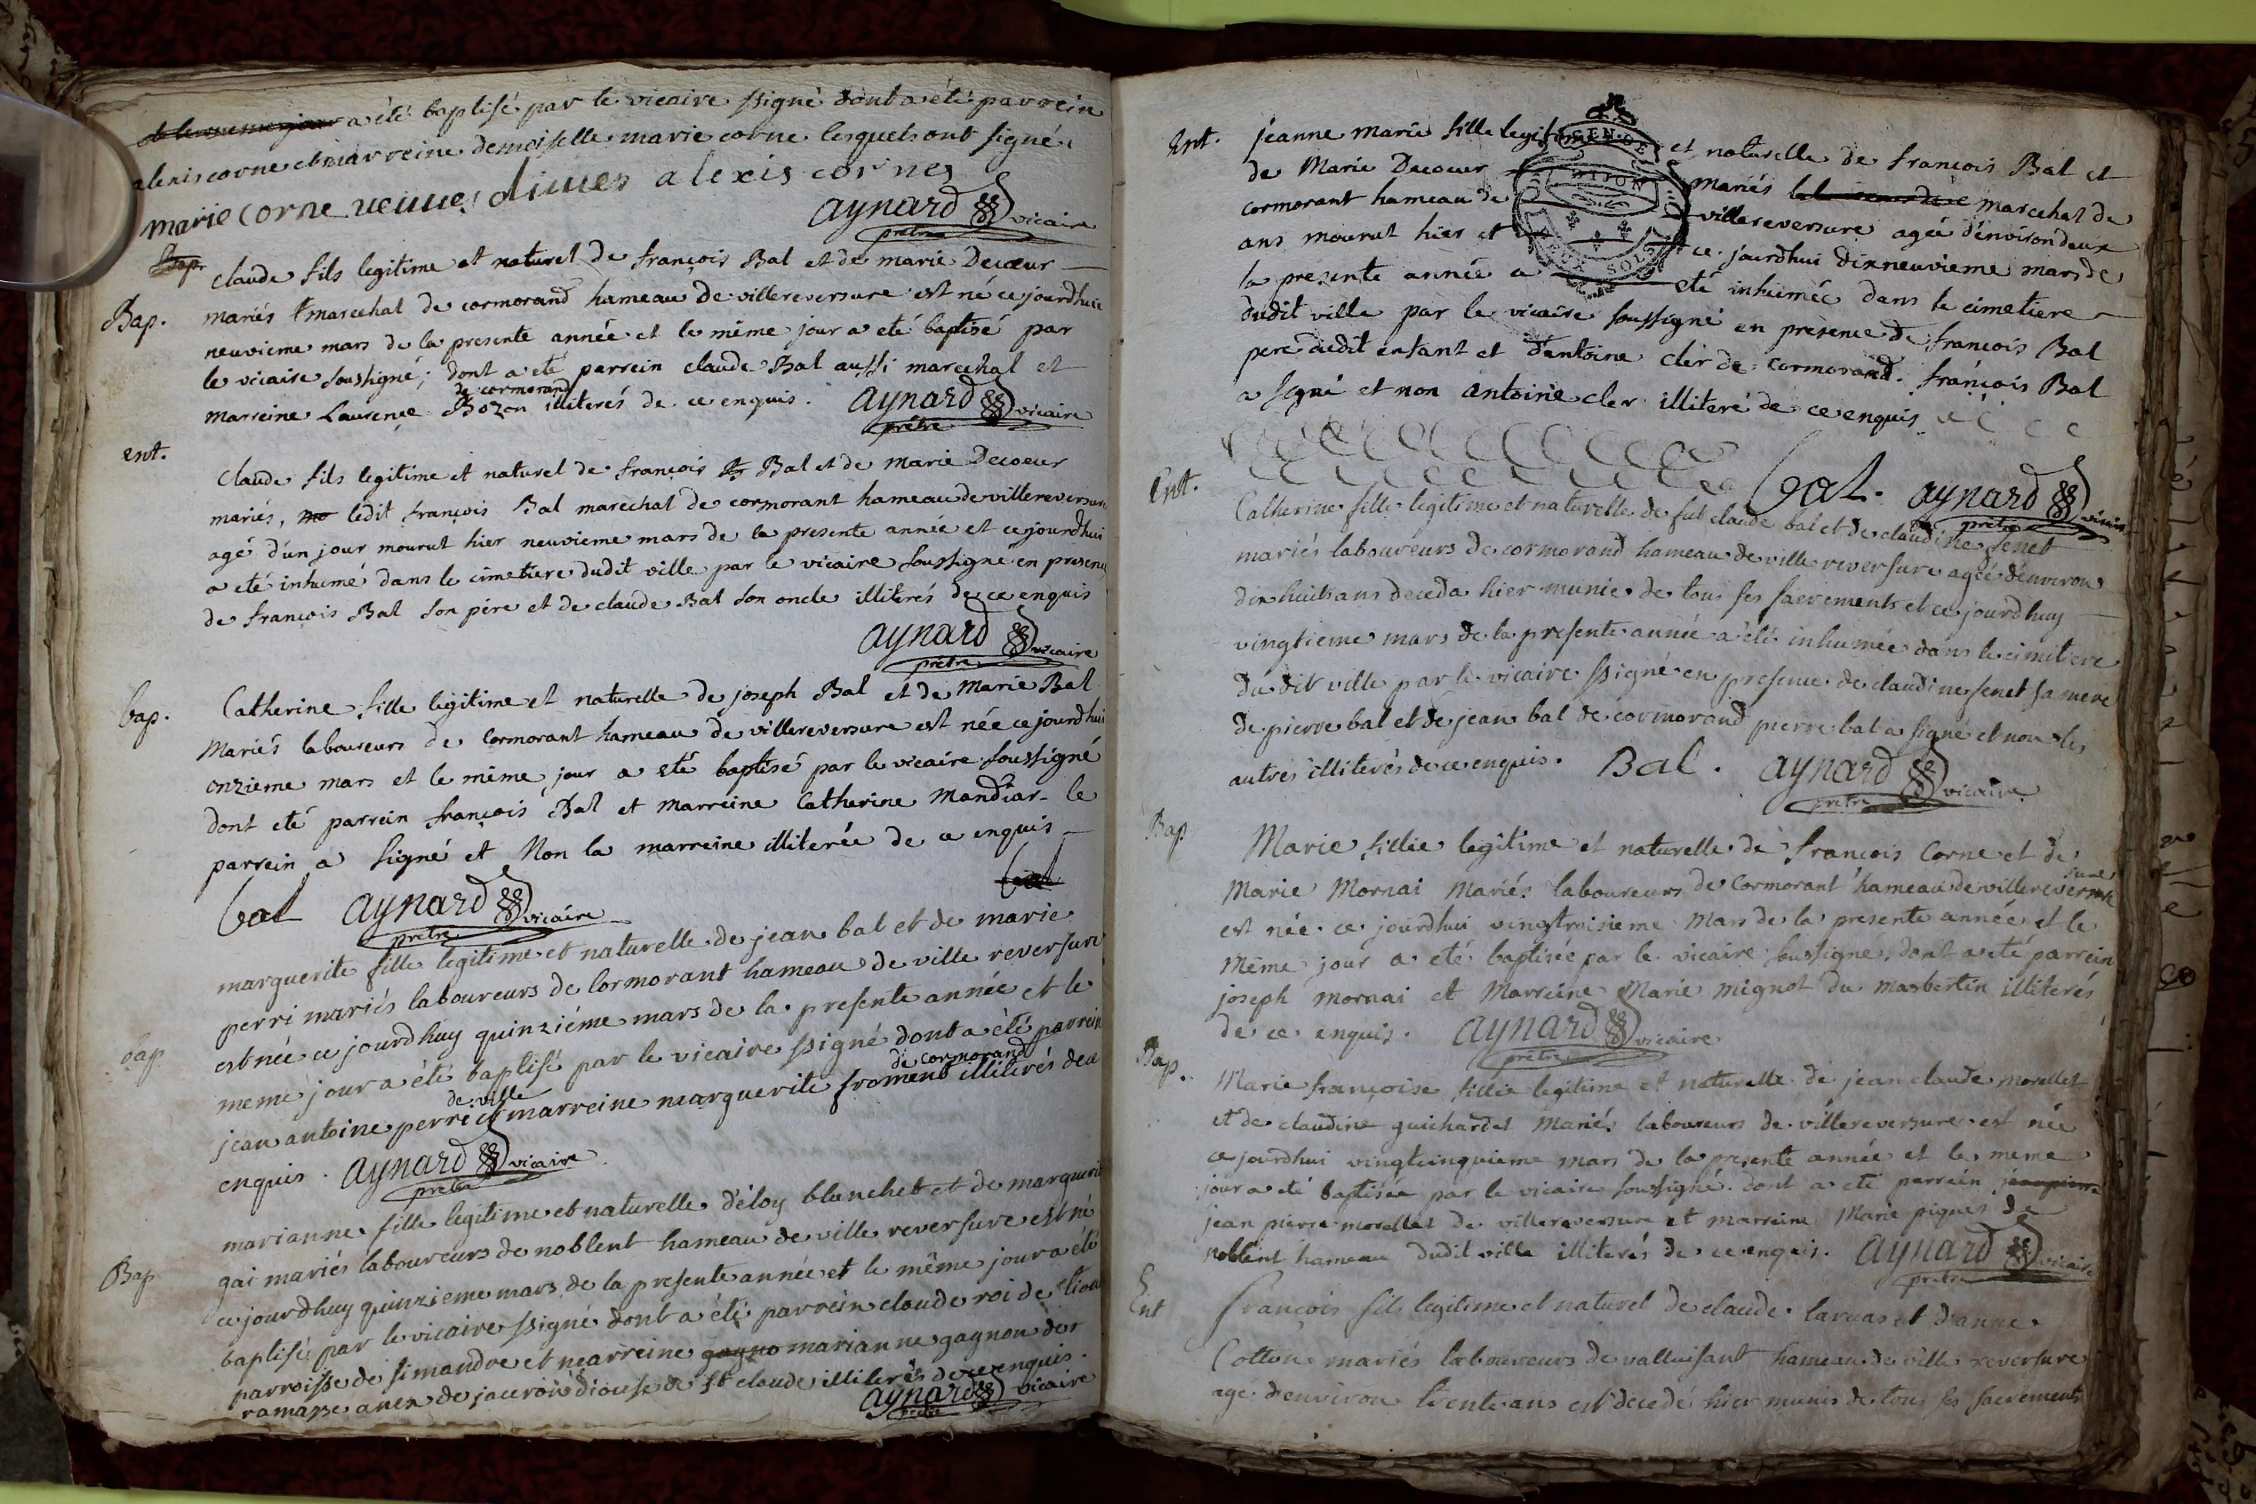 de le meme jour a été baptisé par le vicaire ssigné dont a été parrein
alexis corne et marreine demoiselle marie corne lesquels ont signé
marie corne veuve dimes alexis cornes
aynard prêtre vicaire
Bap.
Bap.
claude fils legitime et naturel de françois Bal et de marie Decœur
mariés marechal de cormorand hameau de villereversure est né ce jourdhui
neuvieme mars de la presente année et le même jour a eté baptisé par
le vicaire soussigné; dont a eté parrein claude Bal aussi marechal et
de cormorand
marreine Laurence Bozon illiterés de ce enquis. aynard prêtre vicaire
ent.
claude fils legitime et naturel de françois Bal et de marie Decoeur
mariés, mo ledit françois Bal marechal de cormorant hameau de villereversure
agé d'un jour mourut hier neuvieme mars de la presente année et ce jourdhui
a eté inhumé dans le cimetiere dudit ville par le vicaire soussigné en presence
de françois Bal son père et de claude Bal son oncle illiterés de ce enquis
aynard prêtre vicaire
bap.
Catherine fille legitime et naturelle de joseph Bal et de Marie Bal
Mariés laboureurs de Cormorant hameau de villereversure est née ce jourdhui
onzieme mars et le même jour a eté baptisé par le vicaire soussigné
dont eté parrein françois Bal et marreine Catherine Mandiar le
parrein a signé et Non la marreine illiterée de ce enquis
Bal
Bal aynard prêtre vicaire
bap
marguerite fille legitime et naturelle de jean bal et de marie
perri mariés laboureurs de Cormorant hameau de ville reversure
est née ce jourdhuy quinziéme mars de la presente année et le
meme jour a été baptisé par le vicaire ssigné dont a été parrein
de ville de cormorand
jean antoine perri et marreine marguerite froment illiterés de ce
enquis. aynard prêtre vicaire
Bap
marianne fille legitime et naturelle d'éloy blanchet et de marguerit
gai mariés laboureurs de noblent hameau de ville reversure est né
ce jourdhuy quinzieme mars de la presente année et le même jour a été
baptisé par le vicaire ssigné dont a été parrein claude roi de
parroisse de simandre et marreine gagno marianne gagnon de
ramasse anex de diocese de st claude illiterés de ce enquis.
aynard prêtre vicaire
Ent.
jeanne marie fille legitime et naturelle de françois Bal et
de Marie Decoeur mariés marechal de
cormorant hameau de villereversure ageé d'environ deux
ans mourut hier et ce jourdhui dixneuvieme mars de
la presente année a eté inhumée dans le cimetiere
dudit ville par le vicaire soussigné en presence de françois Bal
pere dudit enfant et d'antoine cler de cormorand. françois Bal
a signé et non antoine cler illiteré de ce enquis
Bal. aynard prêtre vicaire
Ent.
Catherine fille legitime et naturelle de fut claude bal et de claudine Senet
mariés laboureurs de cormorand hameau de ville reversure ageé d'environ
dix huit ans deceda hier munie de tous ses sacrements et ce jourdhuy
vingtieme mars de la presente année a été inhumée dans le cimitiere
du dit ville par le vicaire ssigné en presence de claudine senet sa mere
de pierre bal et de jean bal de cormorand pierre bal a signé et non les
autres illiterés de ce enquis. Bal. aynard prêtre vicaire
Bap
Marie fillie legitime et naturelle de françois Corne et de
Marie Mornai Mariés laboureurs de Cormorant hameau de villereversure
est née ce jourdhui vingttroisieme Mars de la presente année et le
Même jour a eté baptisée par le vicaire soussigné, dont a eté parrein
joseph mornai et Marreine Marie mignot du masbertin illiterés
de ce enquis. aynard prêtre vicaire
Bap.
Marie françoise fillie legitime et naturelle de jean claude morellet
et de claudine guichardet Mariés laboureurs de villereversure est née
ce jourdhui vingtcinquieme mars de la presente année et le meme
jour a eté baptisée par le vicaire soussigné. dont a eté parrein jean pierre
jean pierre morellet de villereversure et marreine Marie piquet de
noblent hameau dudit ville illiterés de ce enquis. aynard prêtre vicaire
Ent
françois fils legitime et naturel de claude laruas et d'anne
Cotton mariés laboureurs de valluisant hameau de ville reversure
agé d'environ trente ans est decedé hier munis de tous ses sacrements